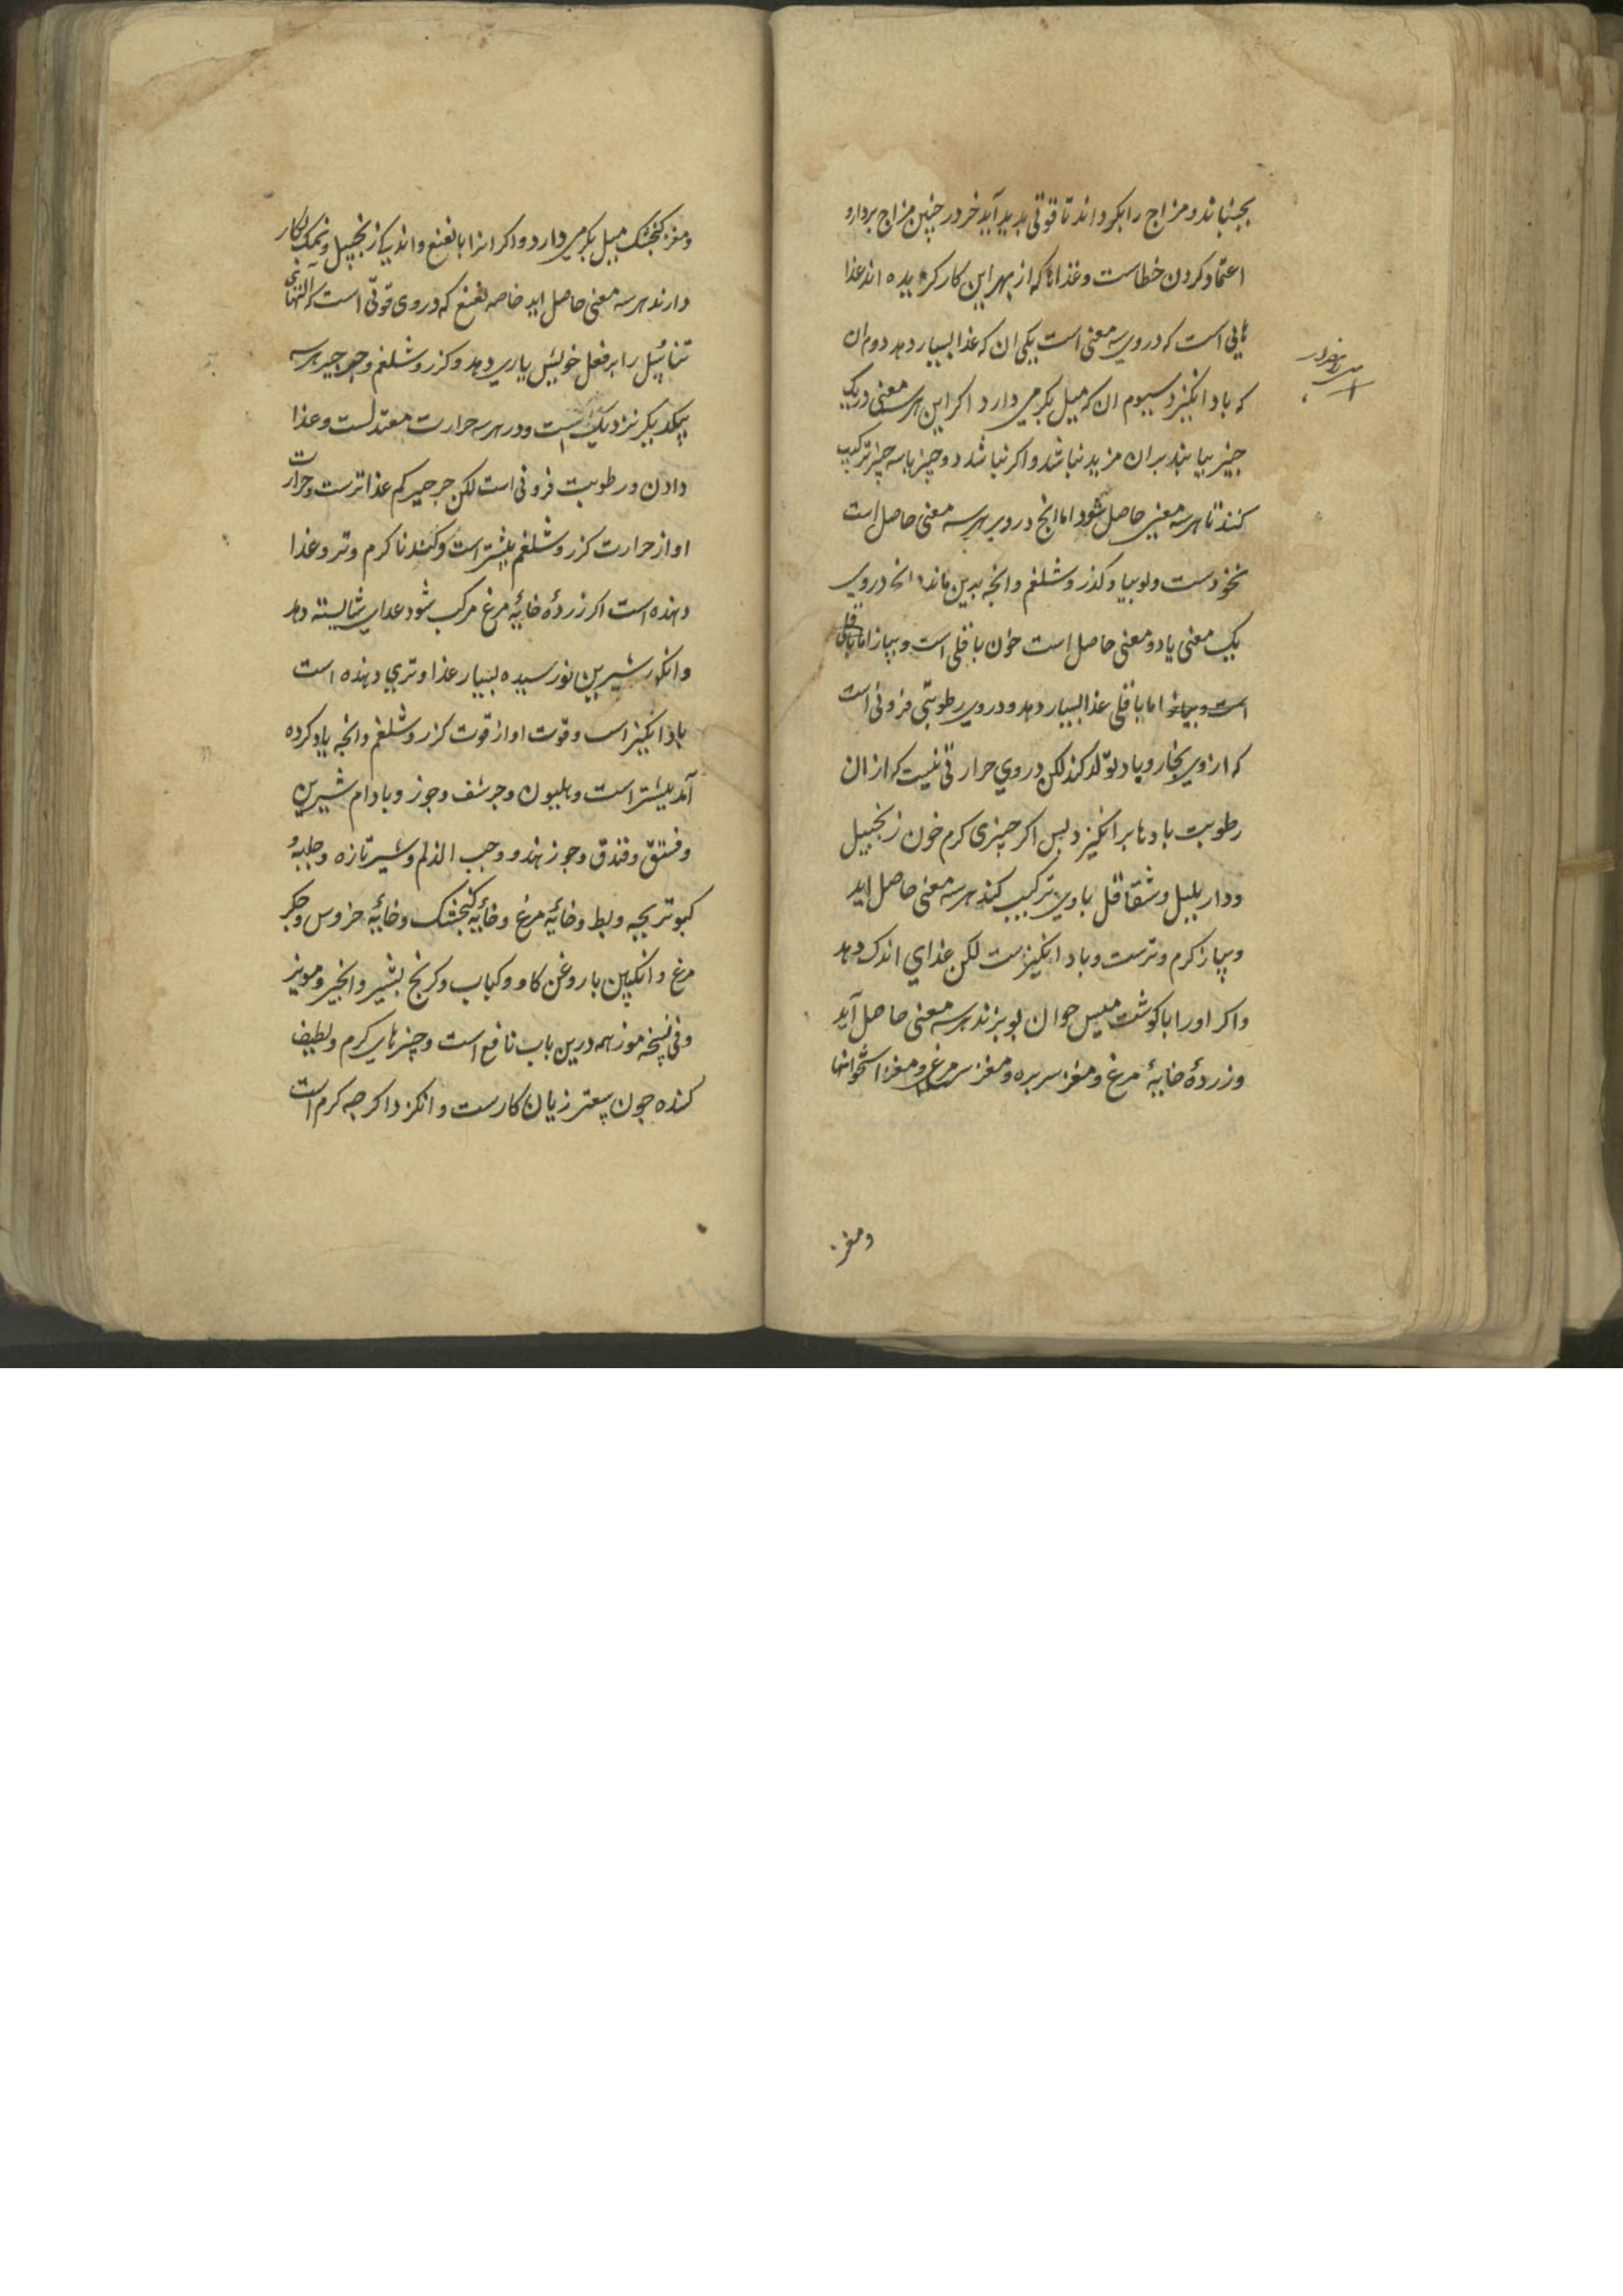 بجنباند و مزاج را بکرداند تا قوتی بدید آید خر در چنین مزاج بردارو
اعتماد کردن خطاست و غذاها که از بهر این کار کزیده اند غذا
هایی است که در وی سه معنی است یکی ان که غذا بسیار دهد دوم ان
که باد انکیزد سیوم ان که میل بکرمی دارد اکر این هر سه معنی در یک
چیز بیابند بران مزید نباشد و اکر نباشد دو چیز یا سه چیز ترکیب
کنند تا هر سه معنی حاصل شود اما انج در وی هر سه معنی حاصل است
نخودست و لوبیا و کذر و شلغم و انچه بدین ماند انچه در وی
یک معنی یا دو معنی حاصل است چون باقلی است و پیاز اما باقلی
است و پیاز اما باقلی غذا بسیار دهد و در وی رطوبتی فزونی است
که از وی بخار و باد تولد کند لکن در وی حرارتی نیست که از ان
رطوبت بادها بر انکیزد پس اکر چیزی کرم چون زنجبیل
و دار بلبل و شقاقل با وی ترکیب کند هر سه معنی حاصل اید
و پیاز کرم و ترست و باد انکیزست لکن غذای اندک دهد
و اکر او را با کوشت میش جوان بو بزند هر سه معنی حاصل آید
و زردهٔ خایهٔ مرغ و مغز سر بره و مغز سر مرغ و مغز استخوانها
و مغز
و مغز کنجشک میل بکرمی دارد و اکر انرا با نعنع و اندکی زنجبیل و نمک بکار
دارند هر سه معنی حاصل اید خاصه نعنع که در وی قوتی است که التهای
تناسل را بر فعل خویش یاری دهد و کزر و شلغم و جرجیر هر سه
بیکدیکر نزدیک است و در هر سه حرارت معتدلست و غذا
دادن و رطوبت فزونی است لکن جرجیر کم غذاترست و حرارت
او از حرارت کزر و شلغم بیشتر است و کندنا کرم و تر و غذا
دهنده است اکر زردهٔ خایهٔ مرغ مرکب شود غذای شایسته دهد
و انکور شیرین نورسیده بسیار غذا و تری دهنده است
باد انکیز است و قوت او از قوت کزر و شلغم و انچه یاد کرده
آمد بیشتر است و هلیون و حرشف و جوز و بادام شیرین
و فستق و فندق و جوز هندو و حب الزلم و شیر تازه و حلبه و
کبوتر بچه و بط و خایهٔ مرغ و خایهٔ کنجشک و خایهٔ خروس و جکر
مرغ و انکبین با روغن کاو و کباب و کرنج بشیر و انجیر و مویز
و فی نسخه موز همه درین باب نافع است و چیزهای کرم و لطیف
کننده چون سعتر زیان کارست و انکزد اکر چه کرم است